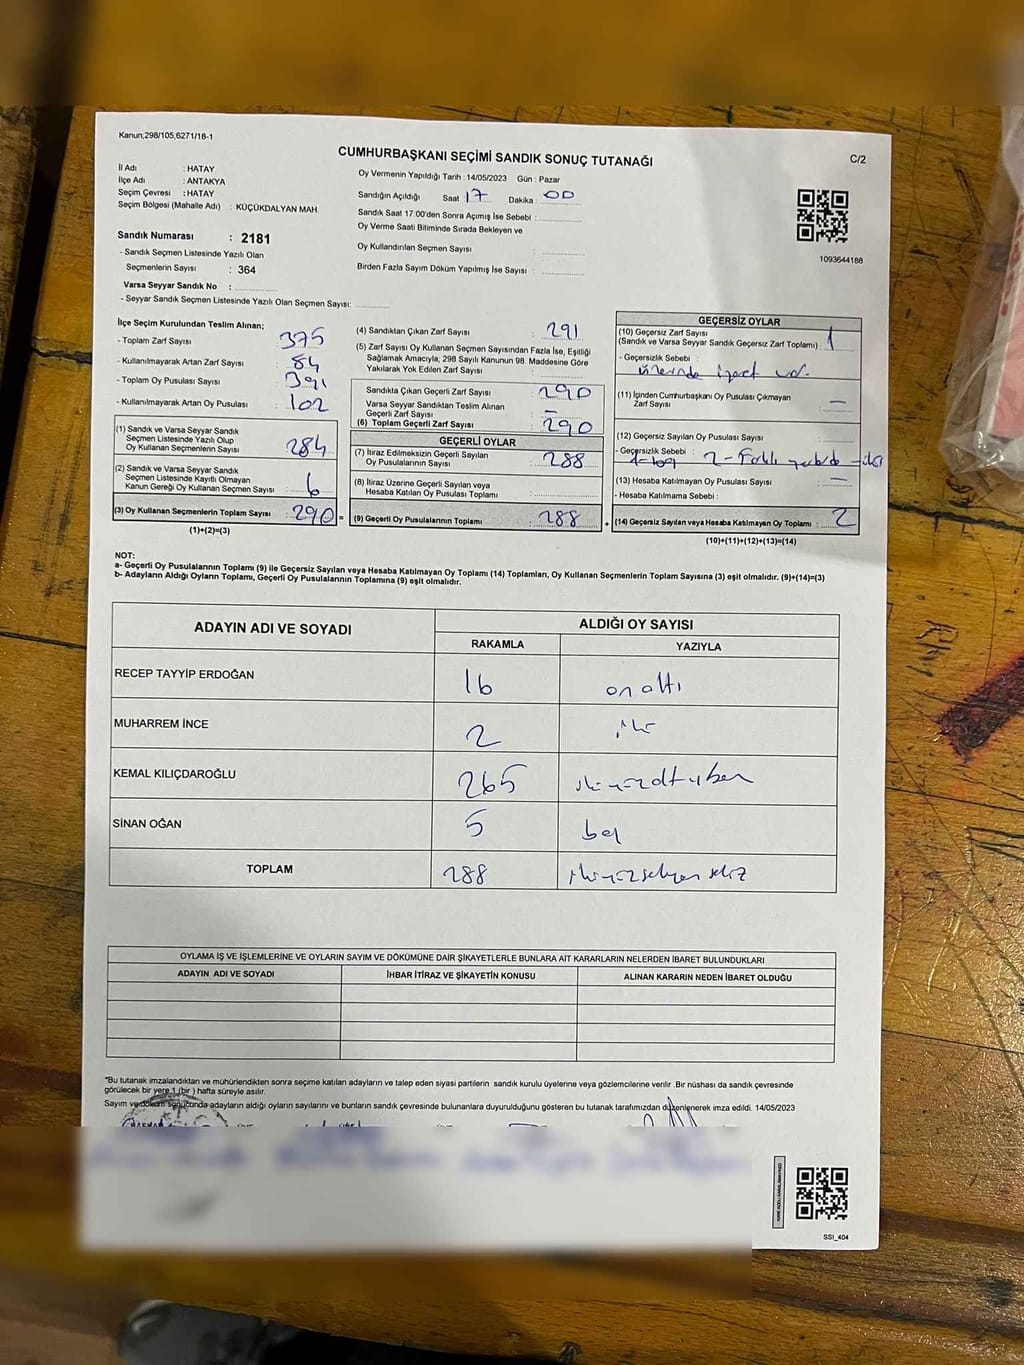 Kanun,298/105,6271/18-1
CUMHURBAŞKANI SEÇİMİ SANDIK SONUÇ TUTANAĞI
C/2
İl Adı : HATAY
İlçe Adı : ANTAKYA
Seçim Çevresi : HATAY
Seçim Bölgesi (Mahalle Adı) : KÜÇÜKDALYAN MAH.
Sandık Numarası : 2181
- Sandık Seçmen Listesinde Yazılı Olan
Seçmenlerin Sayısı : 364
Varsa Seyyar Sandık No :
- Seyyar Sandık Seçmen Listesinde Yazılı Olan Seçmen Sayısı:
Oy Vermenin Yapıldığı Tarih : 14/05/2023 Gün : Pazar
Sandığın Açıldığı Saat 17 Dakika : 00
Sandık Saat 17:00'den Sonra Açımış İse Sebebi :
Oy Verme Saati Bitiminde Sırada Bekleyen ve
Oy Kullandırılan Seçmen Sayısı :
Birden Fazla Sayım Döküm Yapılmış İse Sayısı :
1093644186
İlçe Seçim Kurulundan Teslim Alınan;
- Toplam Zarf Sayısı : 375
- Kullanılmayarak Artan Zarf Sayısı : 84
- Toplam Oy Pusulası Sayısı : 391
- Kullanılmayarak Artan Oy Pusulası : 102
(1) Sandık ve Varsa Seyyar Sandık
Seçmen Listesinde Yazılı Olup
Oy Kullanan Seçmenlerin Sayısı : 284
(2) Sandık ve Varsa Seyyar Sandık
Seçmen Listesinde Kayıtlı Olmayan
Kanun Gereği Oy Kullanan Seçmen Sayısı : 6
(3) Oy Kullanan Seçmenlerin Toplam Sayısı : 290
(1)+(2)=(3)
(4) Sandıktan Çıkan Zarf Sayısı : 291
(5) Zarf Sayısı Oy Kullanan Seçmen Sayısından Fazla İse, Eşitliği
Sağlamak Amacıyla; 298 Sayılı Kanunun 98. Maddesine Göre
Yakılarak Yok Edilen Zarf Sayısı :
Sandıkta Çıkan Geçerli Zarf Sayısı : 290
Varsa Seyyar Sandıktan Teslim Alınan
Geçerli Zarf Sayısı : —
(6) Toplam Geçerli Zarf Sayısı : 290
GEÇERLİ OYLAR
(7) İtiraz Edilmeksizin Geçerli Sayılan
Oy Pusulalarının Sayısı : 288
(8) İtiraz Üzerine Geçerli Sayılan veya
Hesaba Katılan Oy Pusulası Toplamı :
(9) Geçerli Oy Pusulalarının Toplamı : 288
GEÇERSİZ OYLAR
(10) Geçersiz Zarf Sayısı
(Sandık ve Varsa Seyyar Sandık Geçersiz Zarf Toplamı) : 1
- Geçersizlik Sebebi :
üzerinde işaret var.
(11) İçinden Cumhurbaşkanı Oy Pusulası Çıkmayan
Zarf Sayısı : —
(12) Geçersiz Sayılan Oy Pusulası Sayısı :
- Geçersizlik Sebebi : 1-boş 2-Farklı
(13) Hesaba Katılmayan Oy Pusulası Sayısı : —
- Hesaba Katılmama Sebebi :
(14) Geçersiz Sayılan veya Hesaba Katılmayan Oy Toplamı : 2
(10)+(11)+(12)+(13)=(14)
NOT:
a- Geçerli Oy Pusulalarının Toplamı (9) ile Geçersiz Sayılan veya Hesaba Katılmayan Oy Toplamı (14) Toplamları, Oy Kullanan Seçmenlerin Toplam Sayısına (3) eşit olmalıdır. (9)+(14)=(3)
b- Adayların Aldığı Oyların Toplamı, Geçerli Oy Pusulalarının Toplamına (9) eşit olmalıdır.
ADAYIN ADI VE SOYADI
ALDIĞI OY SAYISI
RAKAMLA YAZIYLA
RECEP TAYYİP ERDOĞAN 16 on altı
MUHARREM İNCE 2 iki
KEMAL KILIÇDAROĞLU 265 ikiyüzaltmışbeş
SİNAN OĞAN 5 beş
TOPLAM 288 ikiyüzseksen sekiz
OYLAMA İŞ VE İŞLEMLERİNE VE OYLARIN SAYIM VE DÖKÜMÜNE DAİR ŞİKAYETLERLE BUNLARA AİT KARARLARIN NELERDEN İBARET BULUNDUKLARI
ADAYIN ADI VE SOYADI İHBAR İTİRAZ VE ŞİKAYETİN KONUSU ALINAN KARARIN NEDEN İBARET OLDUĞU
"Bu tutanak imzalandıktan ve mühürlendikten sonra seçime katılan adayların ve talep eden siyasi partilerin sandık kurulu üyelerine veya gözlemcilerine verilir .Bir nüshası da sandık çevresinde
görülecek bir yere 1 (bir ) hafta süreyle asılır.
Sayım ve döküm sonucunda adayların aldığı oyların sayılarını ve bunların sandık çevresinde bulunanlara duyurulduğunu gösteren bu tutanak tarafımızdan düzenlenerek imza edildi. 14/05/2023
SSI_404